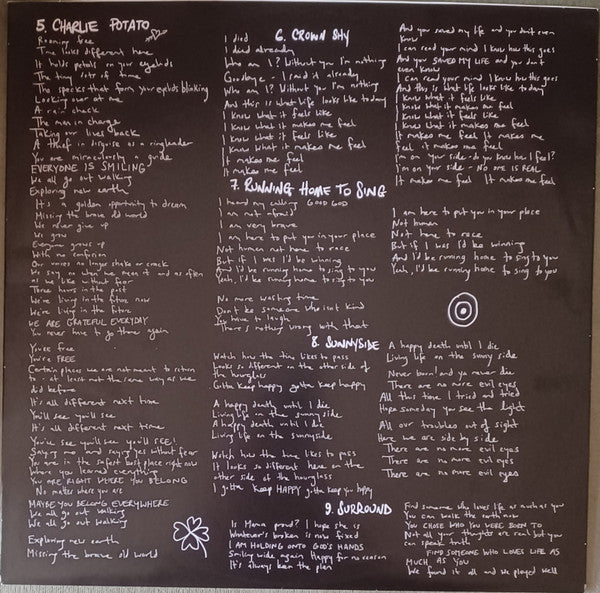 5. CHARLIE POTATO
Roaming free
Time looks different here
It holds petals on your eyelids
The tiny lots of time
The specks that form your eyelids blinking
Looking over at me
A rain check
The man in charge
Taking our lives back
A thief in disguise as a ringleader
You are miraculously a guide
EVERYONE IS SMILING
We all go out walking
Exploring new earth
It's a golden opportunity to dream
Missing the brave old world
We never give up
We grow
Everyone grows up
With no confusion
Our voices no longer shake or crack
We say no when we mean it and as often
as we like without fear
Three hours in the past
We're living in the future now
We're living in the future
WE ARE GRATEFUL EVERYDAY
You never have to go there again
You're free
You're FREE
Certain places we are not meant to return
to - at least not the same way as we
did before
It's all different next time
You'll see you'll see
It's all different next time
You'll see you'll see you'll SEE!
Saying no and saying yes without fear
You are in the safest best place right now
Where you learned everything
YOU ARE RIGHT WHERE YOU BELONG
No matter where you are
MAYBE YOU BELONG EVERYWHERE
We all go out walking
We all go out walking
Exploring new earth
Missing the brave old world
6. CROWN SHY
I died
I died already
Who am I? Without you I'm nothing
Goodbye - I said it already
Who am I? Without you I'm nothing
And this is what life looks like today
I know what it feels like
I know what it makes me feel
I know what it feels like
I know what it makes me feel
It makes me feel
It makes me feel
And you saved my life and you don't even
know
I can read your mind I know how this goes
And you SAVED MY LIFE and you don't
even know
I can read your mind I know how this goes
And this is what life looks like today
I know what it feels like
I know what it makes me feel
I know what it feels like
I know what it makes me feel
It makes me feel It makes me
feel it makes me feel
I'm on your side - do you know how I feel?
I'm on your side - NO ONE IS REAL
It makes me feel It makes me feel
7. RUNNING HOME TO SING
I heard my calling GOOD GOD
I am not afraid
I am very brave
I am here to put you in your place
Not human not here to race
But if I was I'd be winning
And I'd be running home to sing to you
Yeah, I'd be running home to sing to you
No more wasting time
Don't be someone who isn't kind
You have to laugh
There's nothing wrong with that
I am here to put you in your place
Not human
Not here to race
But if I was I'd be winning
And I'd be running home to sing to you
Yeah, I'd be running home to sing to you
8. SUNNYSIDE
Watch how the time likes to pass
Looks so different on the other side of
the hourglass
Gotta keep happy gotta keep happy
A happy death until I die
Living life on the sunny side
A happy death until I die
Living life on the sunnyside
Watch how the time likes to pass
It looks so different here on the
other side of the hourglass
I gotta keep HAPPY gotta keep you happy
A happy death until I die
Living life on the sunny side
Never born! and ya never die
There are no more evil eyes
All this time I tried and tried
Hope someday you see the light
All our troubles out of sight
Here we are side by side
There are no more evil eyes
There are no more evil eyes
There are no more evil eyes
9. SURROUND
Is Mama proud? I hope she is
Whatever's broken is now fixed
I AM HOLDING ONTO GOD'S HANDS
Smiling wide again Happy for no reason
It's always been the plan
Find someone who loves life as much as you
You can walk the earth now
YOU CHOSE WHO YOU WERE BORN TO
Not all your thoughts are real but you
can speak truth
FIND SOMEONE WHO LOVES LIFE AS
MUCH AS YOU
We found it all and we played well